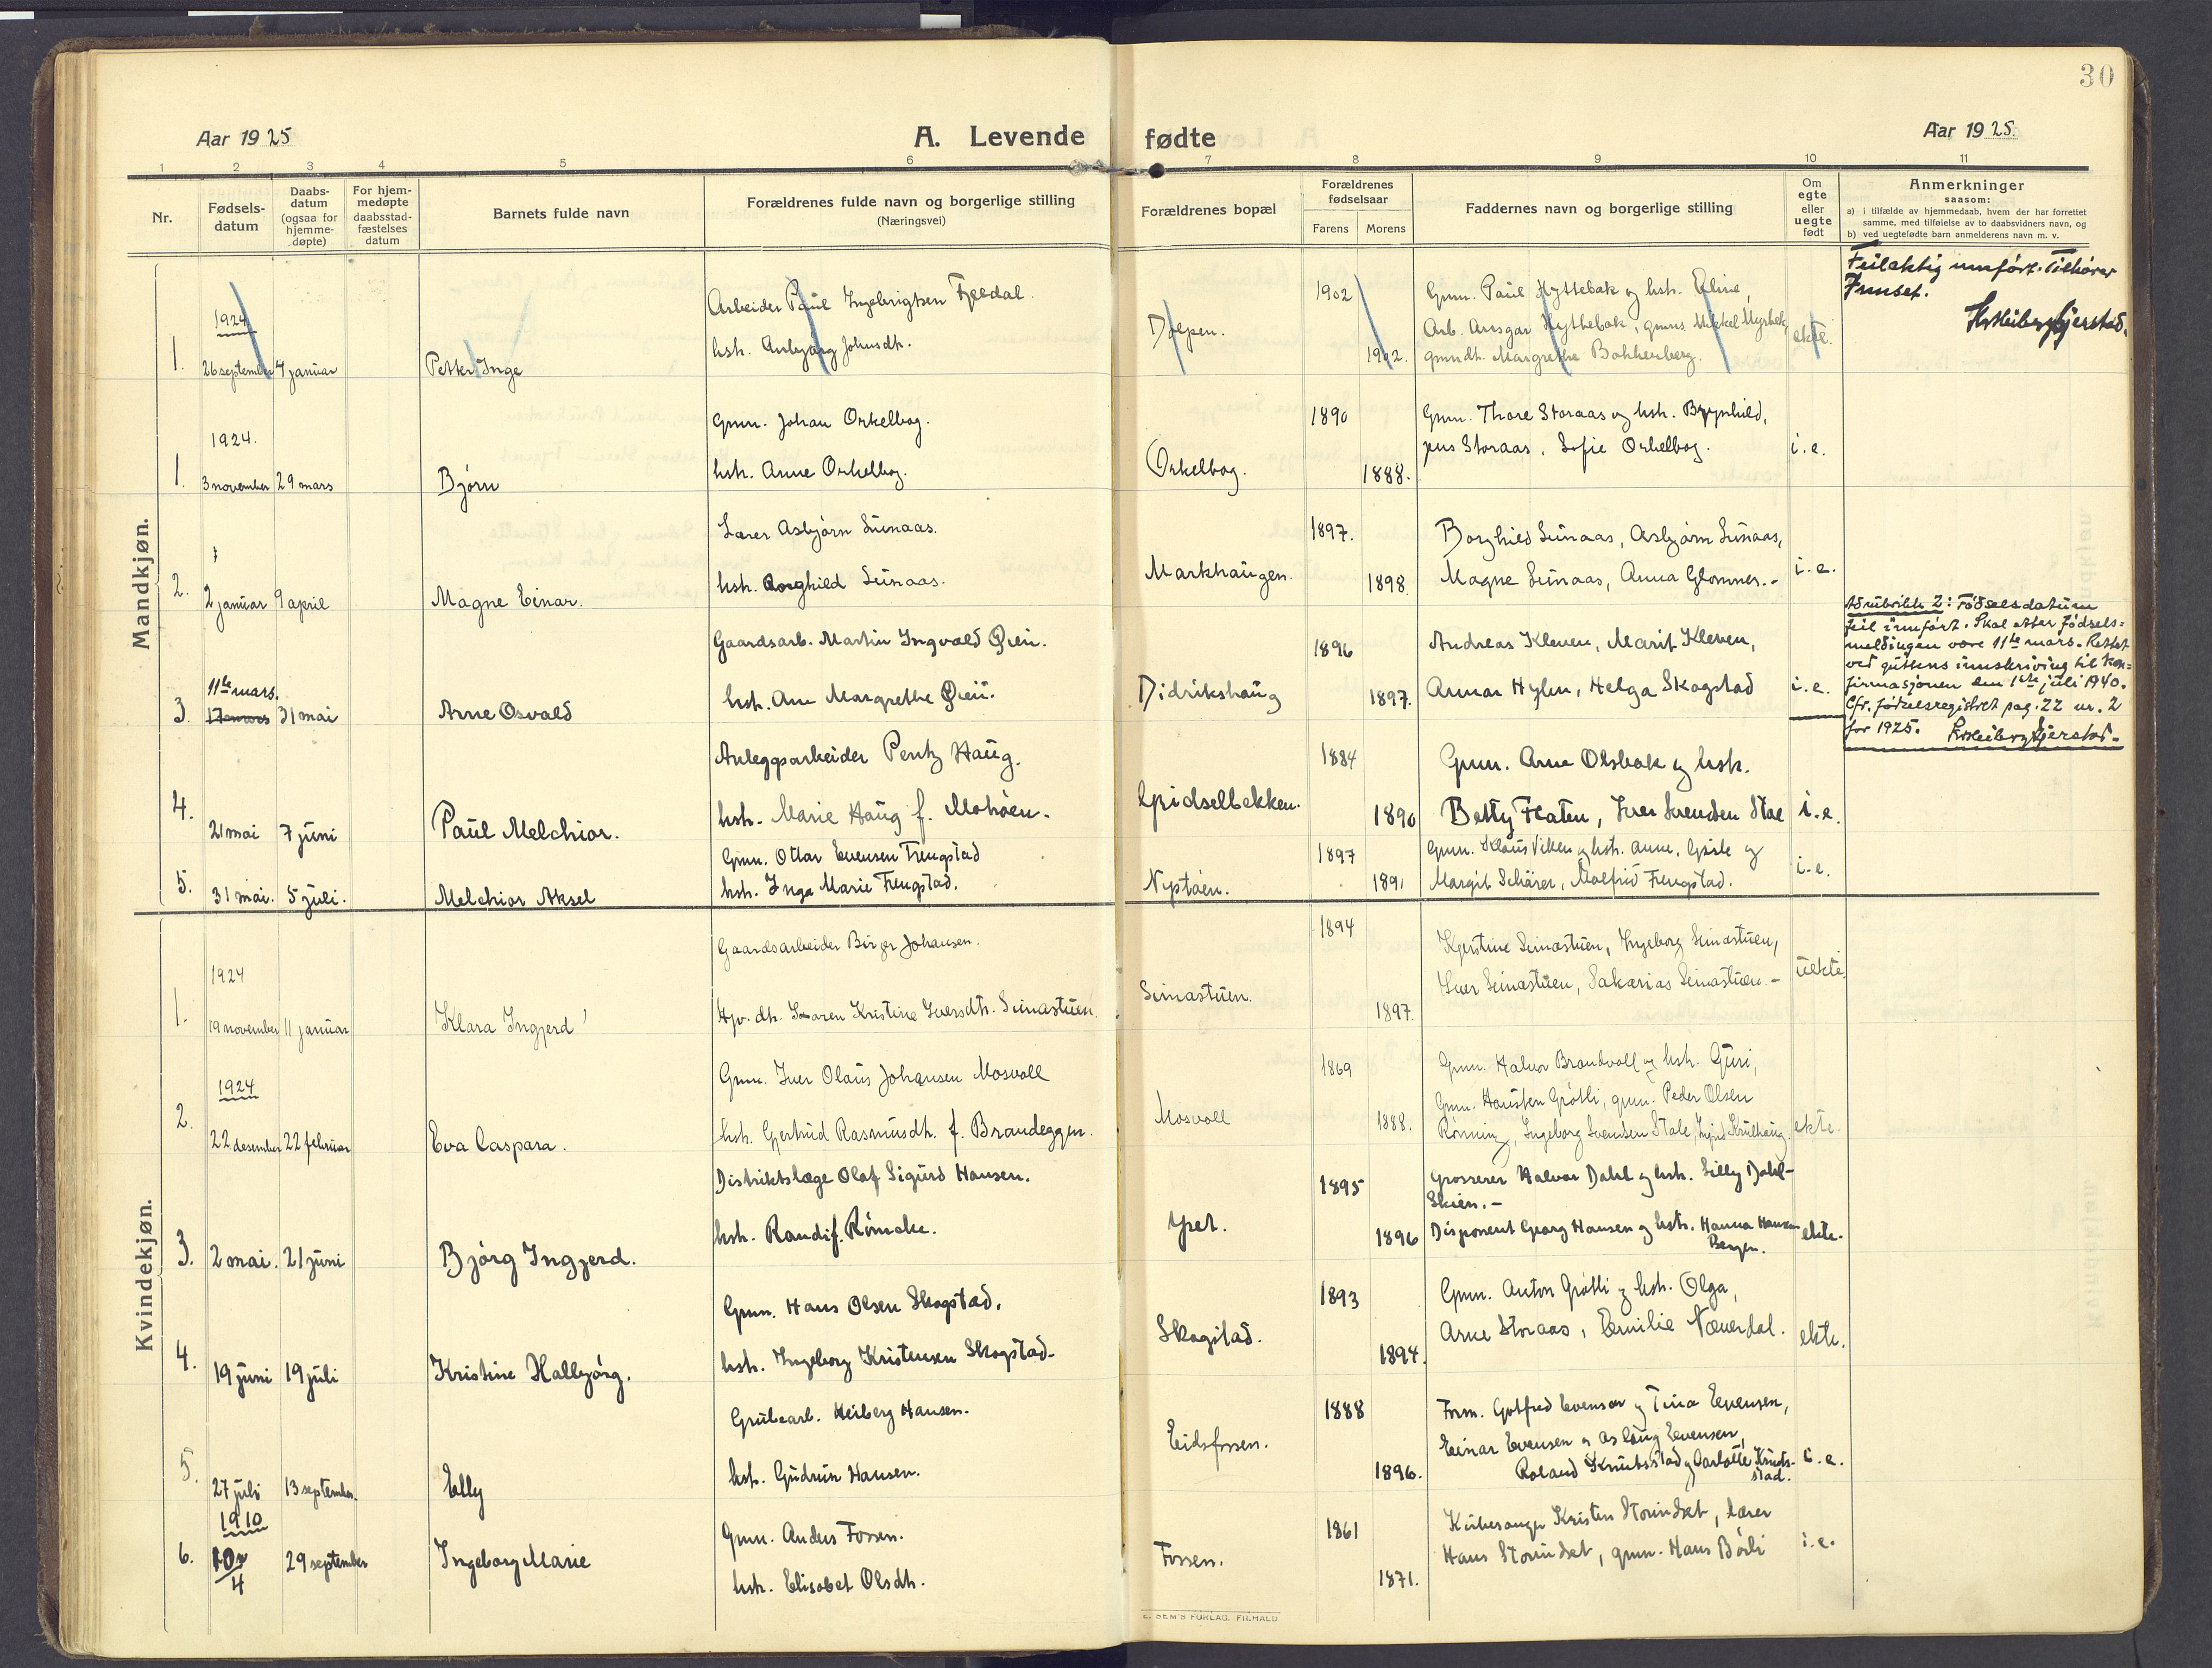 30
Aar 1925
A. Levende
fødte
Aar 1925.
1 2 3 4 5 6 7 8 9 10 11
Nr.
Fødsels-
datum
Daabs-
datum
(ogsaa for
hjemme-
døpte)
For hjem-
medøpte
daabsstad-
fæstelses
datum
Barnets fulde navn
Forældrenes fulde navn og borgerlige stilling
(Næringsvei)
Forældrenes bopæl
Forældrenes
fødselsaar
Farens Morens
Faddernes navn og borgerlige stilling
Om
egte
eller
uegte
født
Anmerkninger
saasom:
a) i tilfælde av hjemmedaab, hvem der har forrettet
samme, med tilføielse av to daabsvidners navn, og
b) ved uegtefødte barn anmelderens navn m. v.
Mandkjøn.
1.
1924
26 september
4 januar
Petter Inge
Arbeider Paul Ingebrigtsen Fjeldal.
hst. Anbjørg Johnsdt.
1902
1902.
Gmn. Paul Hyttebak og hst. Eline,
Arb. Ansgar Hythebak, gmns. Mikkel Myrbek,
gmndt. Margrethe Bakkenberg.
ekte.
Feilaktig innført. Tilhører
Innset.
1.
1924.
3 november
29 mars
Bjørn
Gmn. Johan Orkelbog.
hst. Anne Orkelbog.
Orkelbog.
1890
1888.
Gmn. Thore Storaas og hst. Brynhild,
Jens Storaas, Sofie Orkelbog.
i.e.
2.
2 januar
9 april
Magne Einar.
Lærer Asbjørn Sunaas.
hst. Borghild Sunaas.
Markhaugen.
1897.
1898
Borghild Sunaas, Asbjørn Sunaas,
Magne Sunaas, Anna Glomnes.-
i.e.
3.
11te mars.
17 mars
31 mai
Arne Osvald
Gaardsarb. Martin Ingvald Øien.
hst. Ane Margrethe Øien.
Didrikshaug
1896
1897.
Andreas Kleven, Marit Kleven,
Annar Hylen, Helga Skogstad
i.e.
Ad rubrikk 2: Fødselsdatum
feil innført. Skal etter fødsels-
meldingen være 11te mars. Rettet
ved guttens innskriving til kon-
firmasjonen den 1ste juli 1940.
Cfr. fødselsregistret pag. 22 nr. 2
for 1925.
4.
21 mai
7 juni
Paul Melchior.
Anleggsarbeider Pentz Haug.
hst. Marie Haug f. Mohaen.
Gridselbekken.
1884
1890
Gmn. Arne Olsbak og hst.
Betty Flaten, Iver Svendsen Stae
i.e.
5.
31 mai.
5 juli.
Melchior Aksel
Gmn. Ottar Evensen Trengstad
hst. Inga Marie Trengstad.
Nyptøen.
1897
1891
Gmn. Klaus Viken og hst. Anne, Gisle og
Margit Schärer, Malfrid Trengstad.
i.e.
Kvindekjøn.
1.
1924
19 november
11 januar
Klara Ingjerd
Gaardsarbeider Birger Johansen.
Hpv. dt. Karen Kristine Iversdt. Simastuen.
Simastuen.
1894
1897.
Kjerstine Simastuen, Ingeborg Simastuen,
Iver Simastuen, Sakarias Simastuen.-
uekte.
2.
1924
22 desember
22 februar
Eva Caspara.
Gmn. Iver Olaus Johansen Mosvoll
hst. Gjertrud Rasmusdt. f. Brandeggen.
Mosvoll
1869
1888.
Gmn. Halvor Brandvoll og hst. Guri,
Gmn. Hansten Grøtli, gmn. Peder Olsen
Rønning, Ingeborg Svendsen Stale, Ingrid Krulhaug.
ekte.
3.
2 mai.
21 juni
Bjørg Ingjerd.
Distriktslæge Olaf Sigurd Hansen.
hst. Randi f. Rømcke.
Yset.
1895
1896
Grosserer Halvor Dahl og hst. Silly Dahl-
Skien.-
Disponent Georg Hansen og hst. Hanna Hansen
Bergen.
ekte.
4.
19 juni
19 juli
Kristine Hallbjørg.
Gmn. Hans Olsen Skogstad.
hst. Ingeborg Kristensen Skogstad-
Skogstad.
1893
1894.
Gmn. Anton Grøtli og hst. Olga,
Arne Storaas, Emilie Næverdal.
ekte.
5.
27 juli
13 september.
Elly
Grubearb. Heiberg Hansen.
hst. Gudrun Hansen.
Eidsfossen.
1888
1896.
Form. Gotfred Evensen og Tina Evensen,
Einar Evensen og Aslaug Evensen,
Roland Knudsstad og Carlotte Knuds-
stad.
i.e.
6.
1910
10/4
29 september
Ingeborg Marie
Gmn. Anders Fossen.
hst. Elisabet Olsdt.
Fossen.
1861
1871.
Kirkesanger Kristen Storindset, lærer
Hans Storindset, gmn. Hans Børli
i.e.
E. SEM'S FORLAG. F.HALD